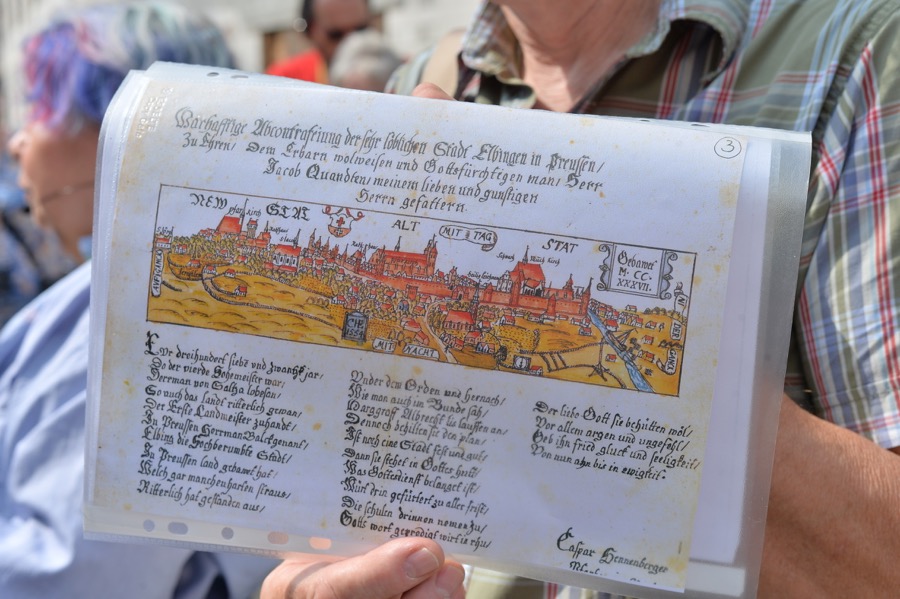 Warhafftige Abcontrafeiung der sehr löblichen Stadt Elbingen in Preussen/
Zu Ehren/ Dem Erbarn wolweisen und Gottsfürchtigen man/ Herr
Jacob Quandten/ meinem lieben und gunstigen
Herrn gefattern.
3
NEW STAT
ALT
MIT TAG
STAT
Gebawet
M·CC·
XXXVII.
MIT NACHT
Vor dreihundert siebē vnd zwantzk jar/
Do der vierde Hogemeister war/
Herrman von Saltza lobesan/
So auch das land ritterlich gewan/
Der Erste Landmeister zuhandt/
In Preussen Herrman Balck genant/
Elbing die Hochberumbte Stadt/
In Preussen land gebawt hat/
Welch gar manchen harten straus/
Ritterlich hat gestanden aus/
Vnder dem Orden und hernach/
Wie man auch im Bunde sah/
Marggroff Albrecht lis lauffen an/
Dennoch behilten sie den plan/
Ist noch eine Stadt fest und gut/
Dann sie stehet in Gottes hutt/
Was Gottsdienst belanget ist/
Wirt drin gefürtert zu aller frist/
Die schulen drinnen nemen zu/
Gotts wort geprediget wirt in rhu/
Der liebe Gott sie behütten wöl/
Vor allem argen und ungefehl/
Geb ihn fried gluck und seeligkeit/
Von nun ahn bis in ewigkeit.
Caspar Hennenberger